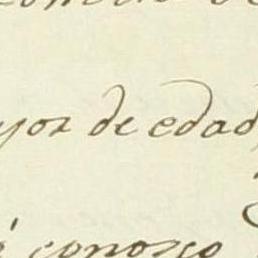 yor de edad
é conozco